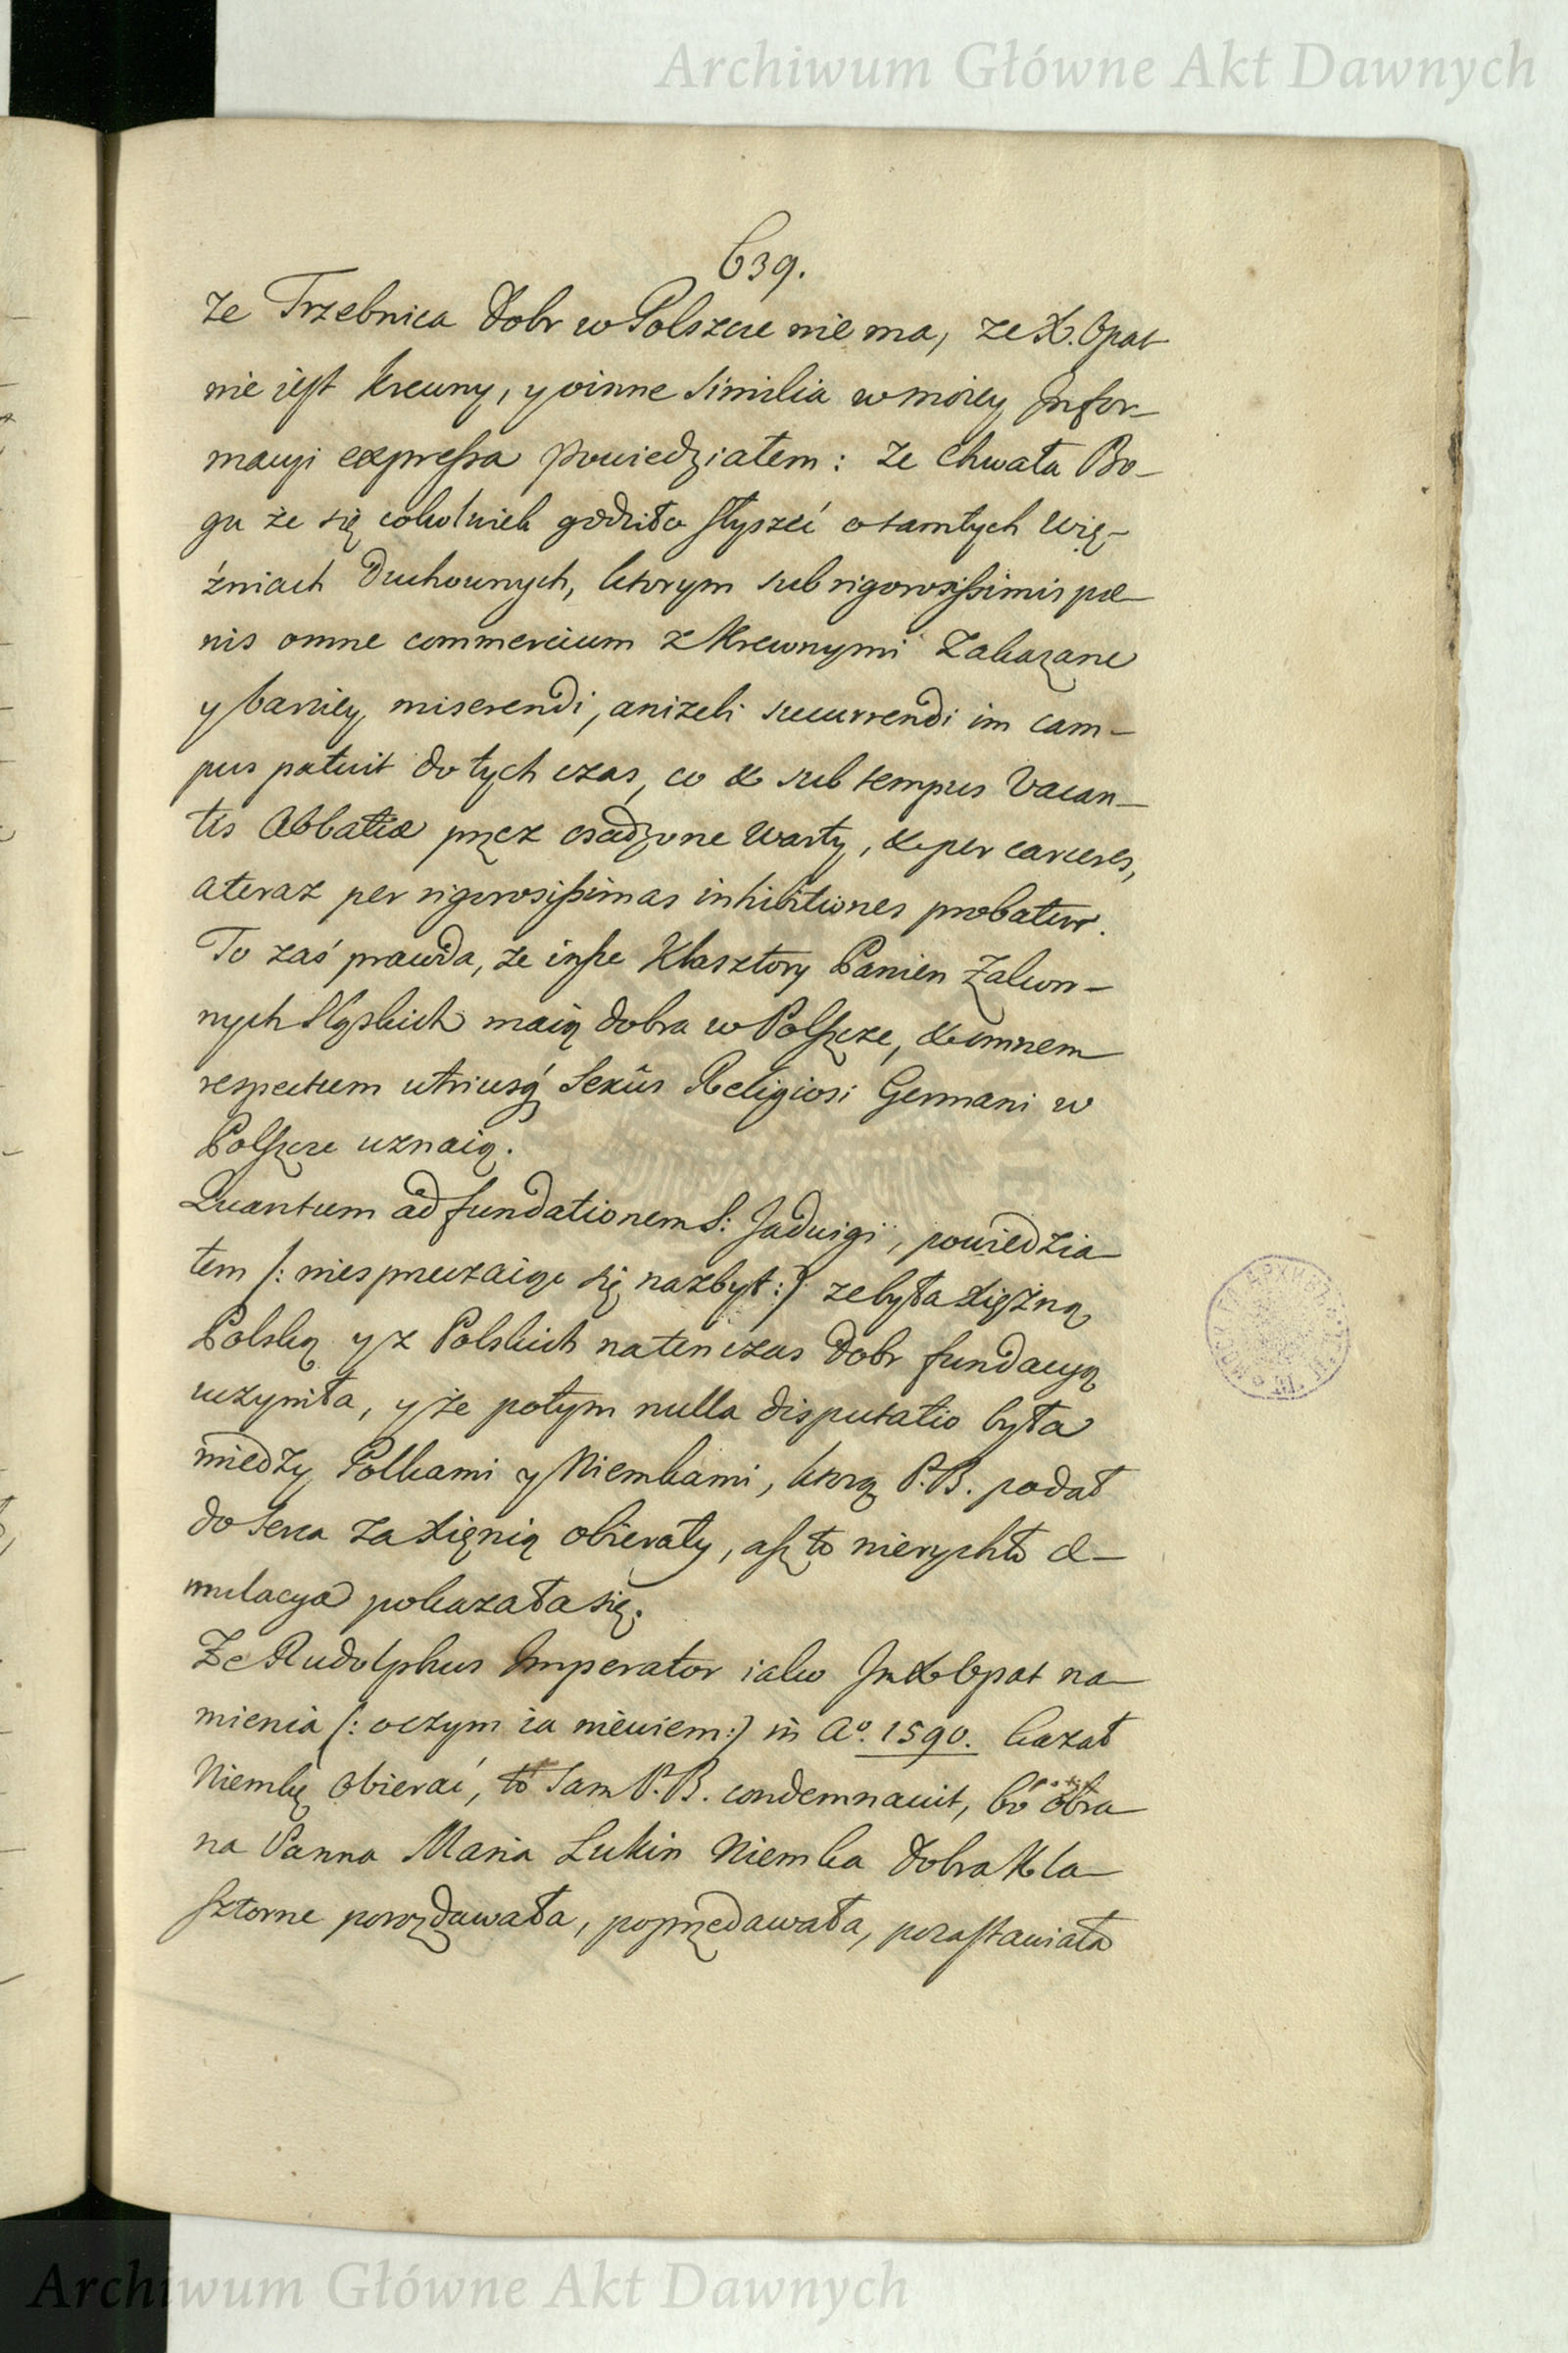 Archiwum Główne Akt Dawnych
639.
Ze Trzebnica Dobr w Polszcze nie ma, ze X. Opat
nie iest krewny, y oinne similia w moiey Infor-
macyi expressa powiedziałem: Ze Chwała Bo-
gu że się cokolwiek godziło słyszeć o tamtych Wię-
źniach Duchownych, ktorym sub rigorosissimis pœ-
nis omne commercium z Krewnymi Zakazane
y barziey miserendi, aniżeli succurrendi im cam-
pus patuit do tych czas, co & sub tempus Vacan-
tis Abbatiæ przez osadzone Warty, & per carceres,
a teraz per rigorosissimas inhibitiones probatur.
To zaś prawda, że insze Klasztory Panien Zakon-
nych Sląskich maią dobra w Polszcze, & omnem
respectum utriusq́ Sexûs Religiosi Germani w
Polszcze uznaią.
Quantum ad fundationem S: Jadwigi, powiedzia-
łem /: niesprzeczaiąc się nazbyt :/ ze była Xiężną
Polską y z Polskich natenczas Dobr fundacyą
uczyniła, y że potym nulla disputatio była
między Polkami y Niemkami, ktorą P. B. podał
do Serca za Xięnią obierały, asz to nierychło æ-
mulacya pokazała się.
Ze Rudolphus Imperator iako Jm X Opat na-
mienia /: oczym ia niewiem :/ in Aº. 1590. kazał
Niemkę obierać, to Sam P. B. condemnavit, bo obra-
na Panna Maria Lukin Niemka dobra Kla-
sztorne porozdawała, poprzedawała, pozastawiała
Archiwum Główne Akt Dawnych